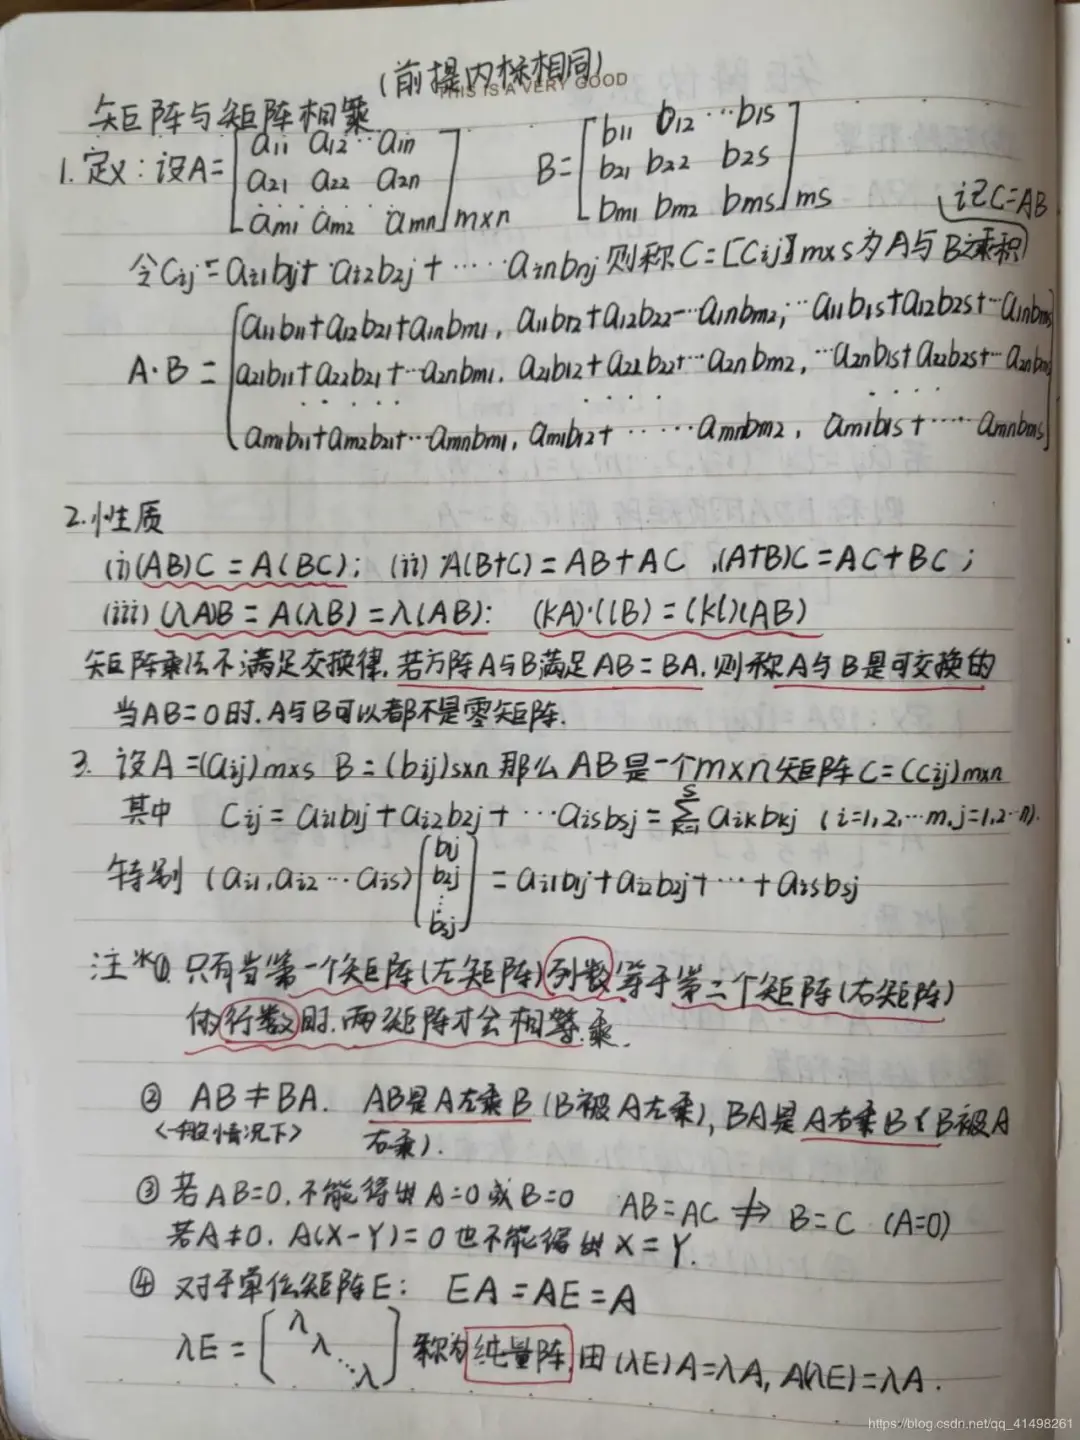 (前提内标相同)
THIS IS A VERY GOOD
矩阵与矩阵相乘
1. 定义: 设A= [a11 a12 … a1n
a21 a22 a2n
am1 am2 amn] m×n B= [b11 b12 … b1s
b21 b22 b2s
bm1 bm2 bms] ms 记C=AB
令Cij=ai1b1j+ai2b2j+……ainbnj 则称C=[Cij]m×s为A与B乘积
A·B= [a11b11+a12b21+a1nbm1, a11b12+a12b22…a1nbm2, … a11b1s+a12b2s+…a1nbms
a21b11+a22b21+…a2nbm1, a21b12+a22b22+…a2nbm2, …a2nb1s+a22b2s+…a2nbms
…… …… ……
am1b11+am2b21+…amnbm1, am1b12+……amnbm2, am1b1s+……amnbms]
2.性质
(i)(AB)C=A(BC); (ii) A(B+C)=AB+AC ,(A+B)C=AC+BC;
(iii)(λA)B=A(λB)=λ(AB): (kA)·(lB)=(kl)(AB)
矩阵乘法不满足交换律,若方阵A与B满足AB=BA,则称A与B是可交换的
当AB=0时,A与B可以都不是零矩阵.
3. 设A=(aij)m×s B=(bij)s×n 那么AB是一个m×n矩阵C=(Cij)m×n
其中 Cij=ai1b1j+ai2b2j+…aisbsj=∑(k=1→s) aikbkj (i=1,2,…m,j=1,2…n).
特别 (ai1,ai2…ais)[b1j b2j ⋮ bsj]=ai1b1j+ai2b2j+…+aisbsj
注*① 只有当第一个矩阵(左矩阵)列数等于第二个矩阵(右矩阵)
的行数时,两矩阵才会相乘.
② AB≠BA. AB是A左乘B(B被A左乘),BA是A右乘B(B被A
<一般情况下> 右乘).
③ 若AB=0,不能得出A=0或B=0 AB=AC ⇏ B=C (A=0)
若A≠0, A(X-Y)=0也不能得出X=Y.
④ 对于单位矩阵E: EA=AE=A
λE= [λ λ ⋱ λ] 称为纯量阵,由(λE)A=λA, A(λE)=λA.
https://blog.csdn.net/qq_41498261